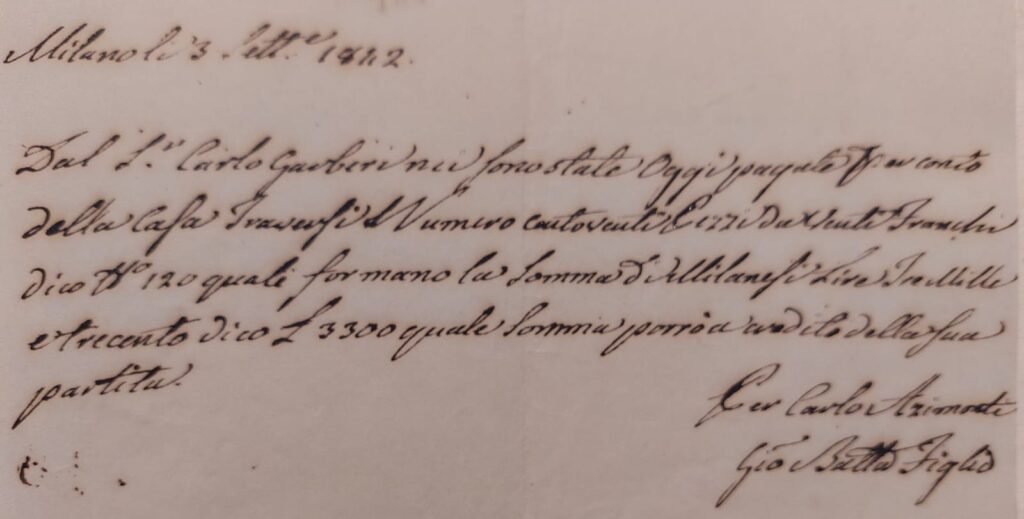 Milano li 3 Sett.e 1842.
Dal S.r Carlo Garberi mi sono state Oggi pagate Per conto
della Casa Traversi N Numero centoventi Pezzi da Venti Franchi
dico N.o 120 quali formano la Somma di Milanesi Lire Tre Mille
e trecento dico L 3300 quale Somma porrò a credito della sua
partita.
Per Carlo Azimonti
Gio Batta Figlio